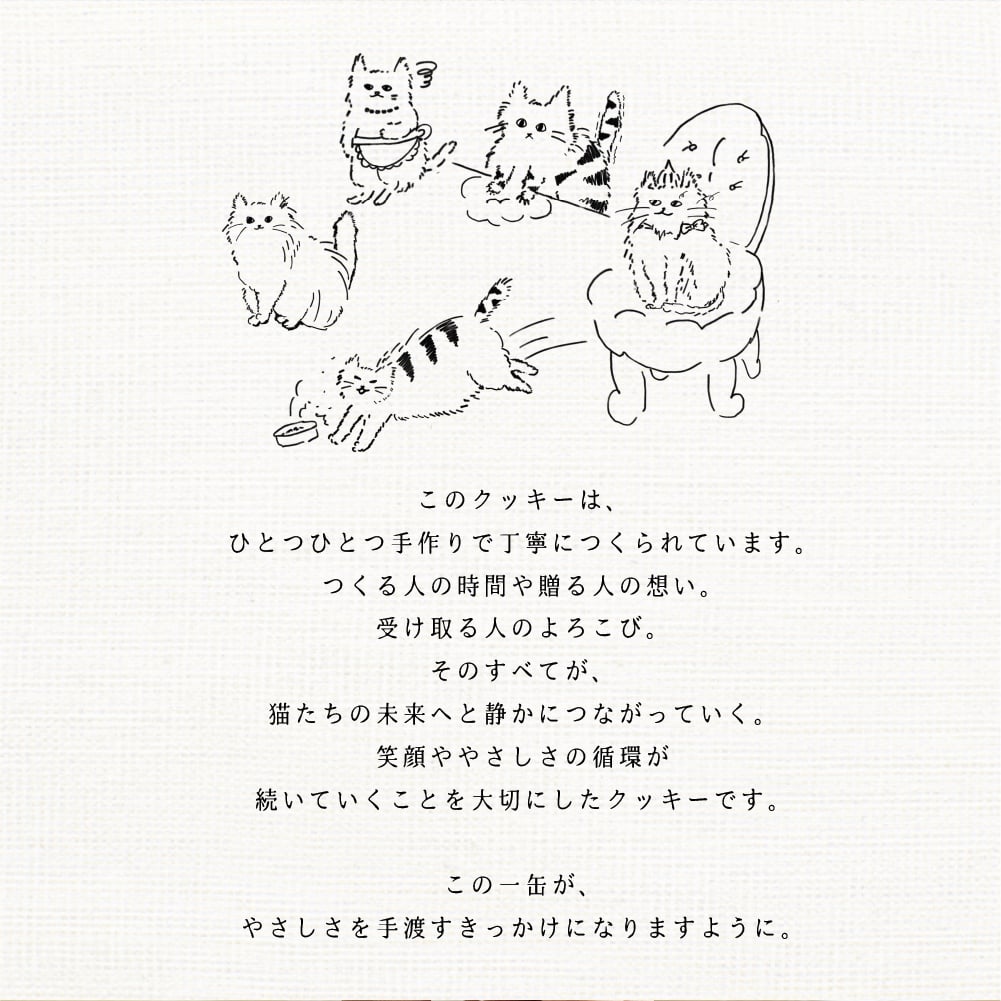 このクッキーは、
ひとつひとつ手作りで丁寧につくられています。
つくる人の時間や贈る人の想い。
受け取る人のよろこび。
そのすべてが、
猫たちの未来へと静かにつながっていく。
笑顔ややさしさの循環が
続いていくことを大切にしたクッキーです。
この一缶が、
やさしさを手渡すきっかけになりますように。